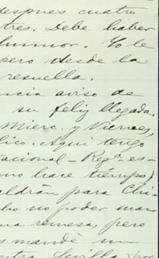 después cuatro
tres. Debe haber
humor. Yo le
pero desde la
resuella.
ncia aviso de
su feliz llegada.
Mierc. y Viernes,
lico. Aqui tengo
acional - Regn. es-
mo hace tiempo)
aldrán para Chi-
ho no poder man
una remesa, pero
s mandé un